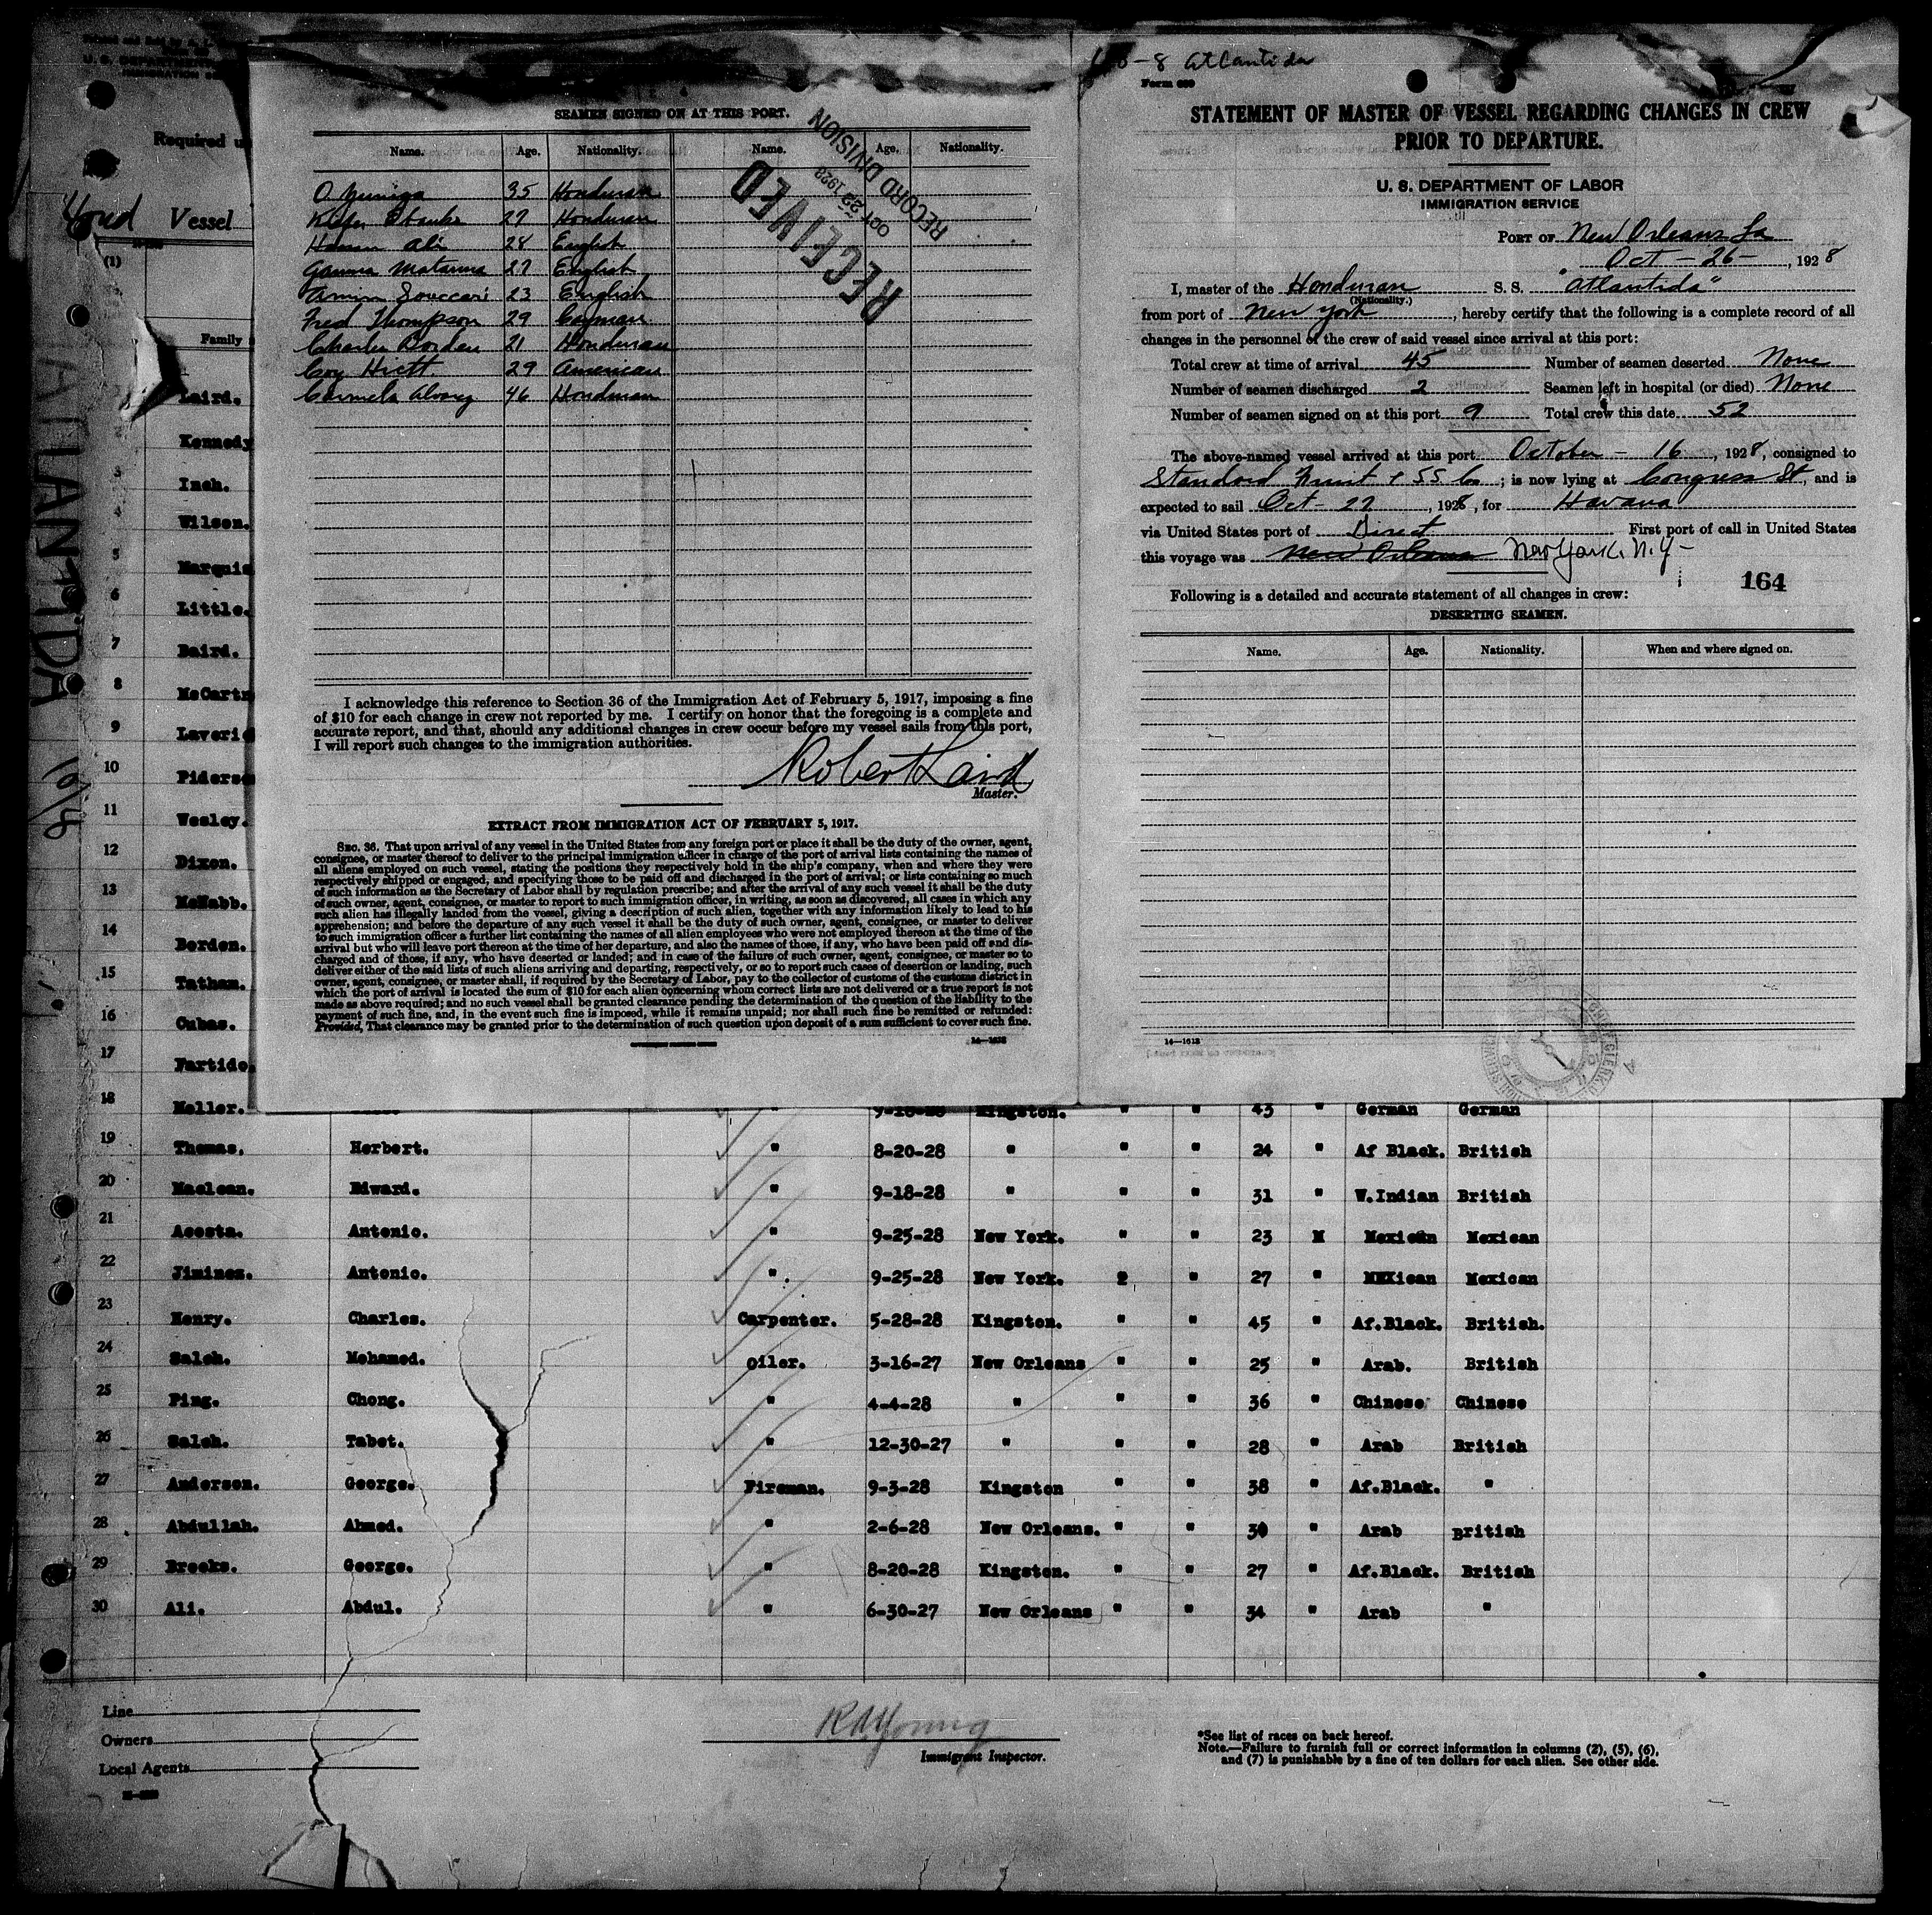 Required
Hond Vessel
(1)
Family
ATLANTIDA 10/16
SEAMEN SIGNED ON AT THIS PORT.
Name. Age. Nationality. Name. Age. Nationality.
O. Zuniga 35 Honduran
Ebanks 27 Honduran
Hassan Ali 28 English
Matanna 27 English
Amin Souccari 23 English
Fred Thompson 29 Cayman
Charles Borden 21 Honduran
Coy Hiett 29 American
Carmelo Alvarez 46 Honduran
RECEIVED
OCT 29 1928
RECORD DIVISION
I acknowledge this reference to Section 36 of the Immigration Act of February 5, 1917, imposing a fine
of $10 for each change in crew not reported by me. I certify on honor that the foregoing is a complete and
accurate report, and that, should any additional changes in crew occur before my vessel sails from this port,
I will report such changes to the immigration authorities.
Robert Laird
Master.
EXTRACT FROM IMMIGRATION ACT OF FEBRUARY 5, 1917.
SEC. 36. That upon arrival of any vessel in the United States from any foreign port or place it shall be the duty of the owner, agent,
consignee, or master thereof to deliver to the principal immigration officer in charge of the port of arrival lists containing the names of
all aliens employed on such vessel, stating the positions they respectively hold in the ship's company, when and where they were
respectively shipped or engaged, and specifying those to be paid off and discharged in the port of arrival; or lists containing so much
of such information as the Secretary of Labor shall by regulation prescribe; and after the arrival of any such vessel it shall be the duty
of such owner, agent, consignee, or master to report to such immigration officer, in writing, as soon as discovered, all cases in which any
such alien has illegally landed from the vessel, giving a description of such alien, together with any information likely to lead to his
apprehension; and before the departure of any such vessel it shall be the duty of such owner, agent, consignee, or master to deliver
to such immigration officer a further list containing the names of all alien employees who were not employed thereon at the time of the
arrival but who will leave port thereon at the time of her departure, and also the names of those, if any, who have been paid off and dis-
charged and of those, if any, who have deserted or landed; and in case of the failure of such owner, agent, consignee, or master so to
deliver either of the said lists of such aliens arriving and departing, respectively, or so to report such cases of desertion or landing, such
owner, agent, consignee, or master shall, if required by the Secretary of Labor, pay to the collector of customs of the customs district in
which the port of arrival is located the sum of $10 for each alien concerning whom correct lists are not delivered or a true report is not
made as above required; and no such vessel shall be granted clearance pending the determination of the question of the liability to the
payment of such fine, and, in the event such fine is imposed, while it remains unpaid; nor shall such fine be remitted or refunded:
Provided, That clearance may be granted prior to the determination of such question upon deposit of a sum sufficient to cover such fine.
-8 Atlantida
Form
STATEMENT OF MASTER OF VESSEL REGARDING CHANGES IN CREW
PRIOR TO DEPARTURE.
U. S. DEPARTMENT OF LABOR
IMMIGRATION SERVICE
PORT OF New Orleans La
Oct - 26 - , 1928
I, master of the Honduran S. S. "Atlantida"
(Nationality.)
from port of New York , hereby certify that the following is a complete record of all
changes in the personnel of the crew of said vessel since arrival at this port:
Total crew at time of arrival 45 Number of seamen deserted None
Number of seamen discharged 2 Seamen left in hospital (or died) None
Number of seamen signed on at this port 9 Total crew this date 52
The above-named vessel arrived at this port October - 16 , 1928, consigned to
Standard Fruit + SS Co ; is now lying at Congress St, and is
expected to sail Oct - 27 , 1928 , for Havana
via United States port of Direct First port of call in United States
this voyage was New Orleans New York. N.Y -
164
Following is a detailed and accurate statement of all changes in crew:
DESERTING SEAMEN.
Name. Age. Nationality. When and where signed on.
14—1613
Laird.
Kennedy
3 Inch.
4 Wilson.
5 Marquis
6 Little.
7 Baird.
8 McCart
9 Laveri
10 Piders
11 Wesley.
12 Dixon.
13 McNabb.
14 Borden.
15 Tatham.
16 Cubas.
17 Partido.
18 Heller. " Kingston. " " 43 " German German
19 Thomas. Herbert. " 8-20-28 " " " 24 " Af Black. British
20 Maclean. Edward. " 9-18-28 " " " 31 " W.Indian British
21 Acosta. Antonio. " 9-25-28 New York. " " 23 M Mexican Mexican
22 Jiminez. Antonio. " 9-25-28 New York. 2 " 27 " MEXican Mexican
23 Henry. Charles. Carpenter. 5-28-28 Kingston. " " 45 " Af.Black. British.
24 Saleh. Mohamed. Oiler. 3-16-27 New Orleans " " 25 " Arab. British
25 Ping. Chong. " 4-4-28 " " " 36 " Chinese Chinese
26 Saleh. Tabet. " 12-30-27 " " " 28 " Arab British
27 Anderson. George. Fireman. 9-3-28 Kingston " " 38 " Af.Black. "
28 Abdullah. Ahmed. " 2-6-28 New Orleans. " " 30 " Arab British
29 Brooks. George. " 8-20-28 Kingston. " " 27 " Af.Black. British
30 Ali. Abdul. " 6-30-27 New Orleans " " 34 " Arab "
Line
Owners
Local Agents
R A Young
Immigrant Inspector.
*See list of races on back hereof.
Note.—Failure to furnish full or correct information in columns (2), (5), (6),
and (7) is punishable by a fine of ten dollars for each alien. See other side.